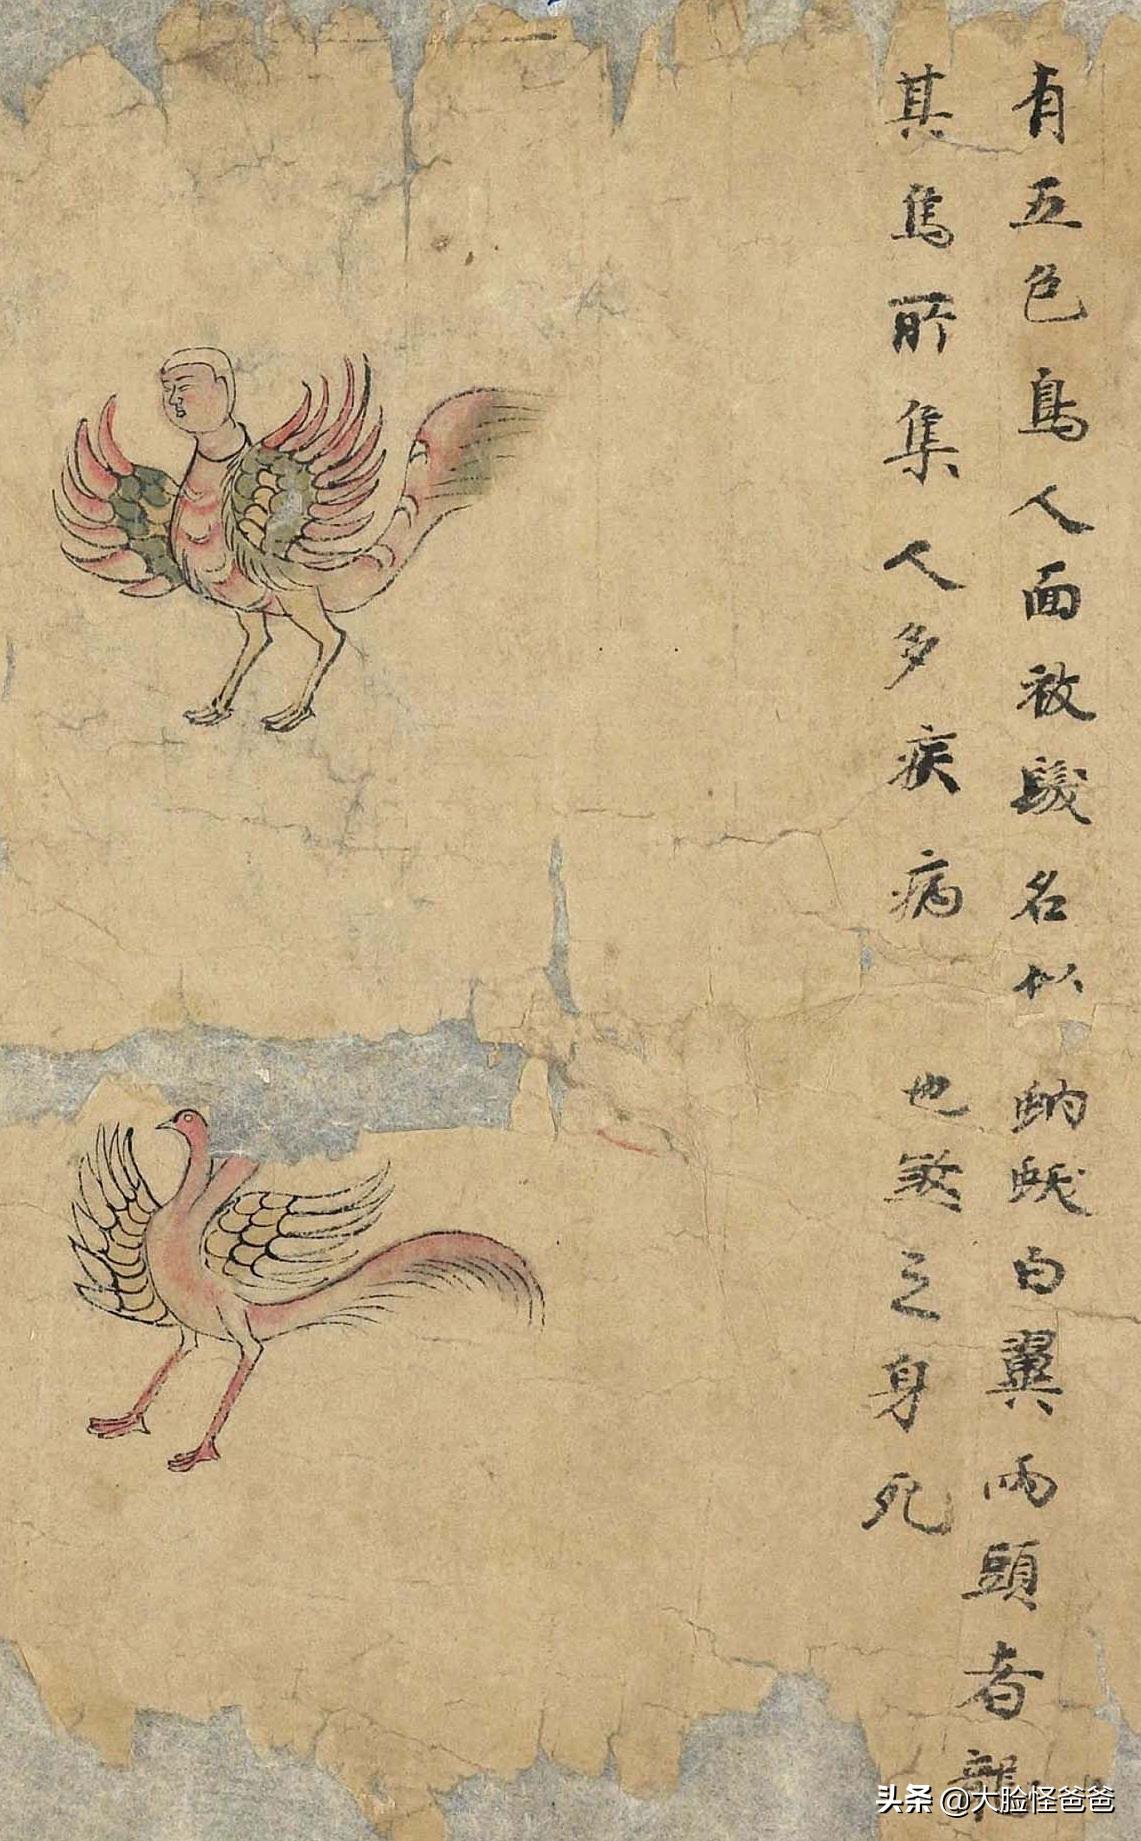 有五色鳥人面被髮名
其鳥所集人多疾病
蚋白翼兩頭者龍
也煞之身死
头条 @大脸怪爸爸